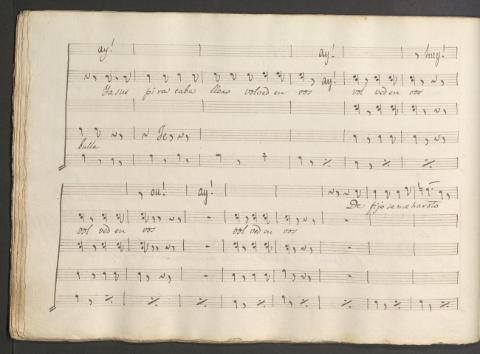 ay! ay! huy!
ay!
pira caba lleros volved en vos vol ved en vos
bulla
ou! ay!
De fijo se me ha roto
vol ved en vos vol ved en vos